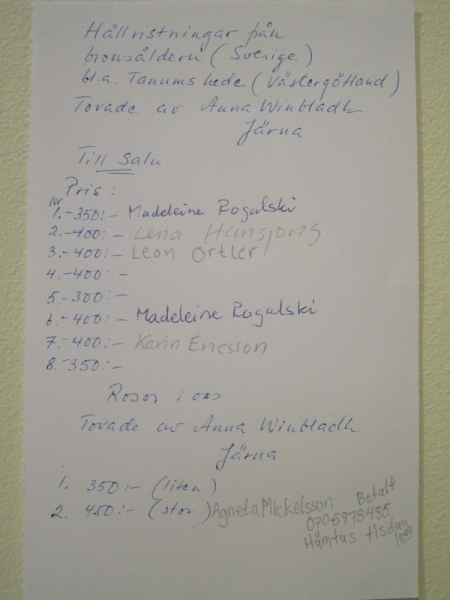 Hällristningar från
bronsåldern (Sverige)
bl.a. Tanums hede (Västergötland)
Tovade av Anna Winbladh
Järna
Till Salu
Pris:
Nr
1.-350:- Madeleine Rogalski
2.-400:- Lena Hansjons
3.-400:- Leon Ortler
4.-400:-
5.-300:-
6.-400:- Madeleine Rogalski
7.-400:- Karin Ericsson
8.-350:-
Rosor i vas
Tovade av Anna Winbladh
Järna
1. 350:- (liten)
2. 450:- (stor) Agneta Mickelsson Betalt
0705978485
Hämtas tisdag